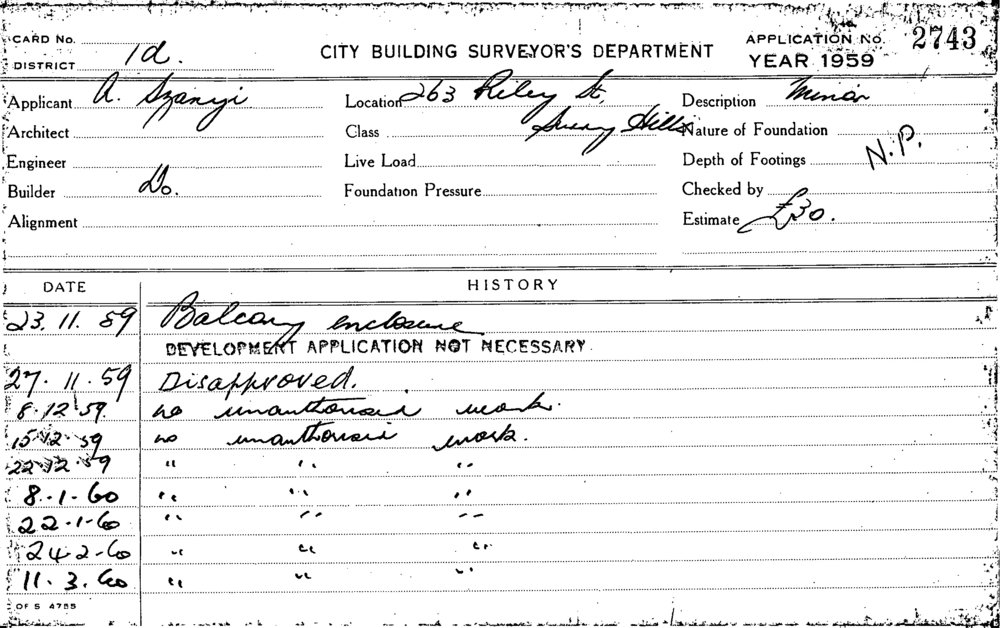 CARD No.
DISTRICT 1d.
CITY BUILDING SURVEYOR'S DEPARTMENT
APPLICATION No. 2743
YEAR 1959
Applicant A. Szanyi
Location 263 Riley St,
Surry Hills
Description Minor
Architect
Class
Nature of Foundation
Engineer
Live Load
Depth of Footings N.P.
Builder Do.
Foundation Pressure
Checked by
Alignment
Estimate £30.
DATE HISTORY
23.11.59 Balcony enclosure
DEVELOPMENT APPLICATION NOT NECESSARY.
27.11.59 Disapproved.
8.12.59. no unauthorised work.
15.12.59 no unauthorised work.
22.12.59 " " "
8.1.60 " " "
22.1.60 " " "
24.2.60 " " "
11.3.60 " " "
OF S 4755